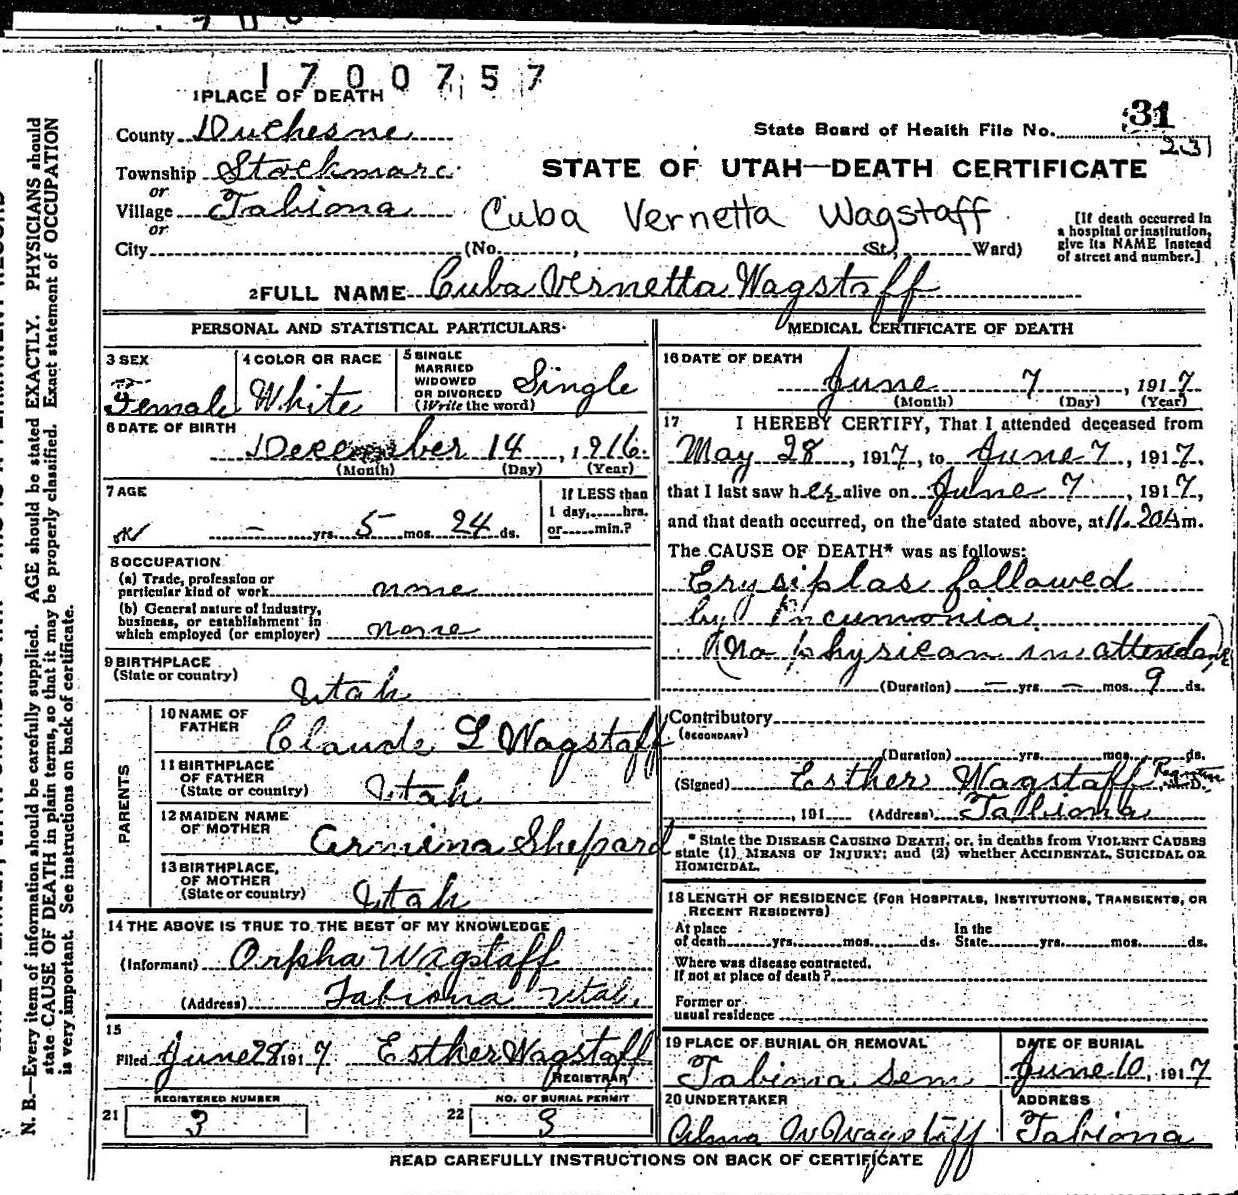 1700757
1 PLACE OF DEATH
County Duchesne
State Board of Health File No. 31
231
Township Stockmore
STATE OF UTAH—DEATH CERTIFICATE
or
Village Tabiona
Cuba Vernetta Wagstaff
or
City (No. , St., Ward)
[If death occurred in
a hospital or institution,
give its NAME instead
of street and number.]
2 FULL NAME Cuba Vernetta Wagstaff
PERSONAL AND STATISTICAL PARTICULARS
3 SEX
Female
4 COLOR OR RACE
White
5 SINGLE
MARRIED
WIDOWED
OR DIVORCED
(Write the word)
Single
6 DATE OF BIRTH
December 14, 1916.
(Month) (Day) (Year)
7 AGE
— yrs. 5 mos. 24 ds.
If LESS than
1 day, hrs.
or min.?
8 OCCUPATION
(a) Trade, profession or
particular kind of work none
(b) General nature of industry,
business, or establishment in
which employed (or employer) none
9 BIRTHPLACE
(State or country)
Utah
PARENTS
10 NAME OF
FATHER
Claude L Wagstaff
11 BIRTHPLACE
OF FATHER
(State or country) Utah
12 MAIDEN NAME
OF MOTHER
Armina Shepard
13 BIRTHPLACE,
OF MOTHER
(State or country) Utah
14 THE ABOVE IS TRUE TO THE BEST OF MY KNOWLEDGE
(Informant) Orpha Wagstaff
(Address) Tabiona Utah.
15
Filed June 28 1917 Esther Wagstaff
REGISTRAR
REGISTERED NUMBER
21 3
NO. OF BURIAL PERMIT
22 3
MEDICAL CERTIFICATE OF DEATH
16 DATE OF DEATH
June 7, 1917
(Month) (Day) (Year)
17 I HEREBY CERTIFY, That I attended deceased from
May 28, 1917, to June 7, 1917,
that I last saw her alive on June 7, 1917,
and that death occurred, on the date stated above, at 11.20 A m.
The CAUSE OF DEATH* was as follows:
Erysiplas followed
by Pneumonia.
(No physican in attendance)
(Duration) — yrs. — mos. 9 ds.
Contributory
(SECONDARY)
(Duration) yrs. mos. ds.
(Signed) Esther Wagstaff
, 191 (Address) Tabiona
* State the DISEASE CAUSING DEATH, or, in deaths from VIOLENT CAUSES
state (1) MEANS OF INJURY; and (2) whether ACCIDENTAL, SUICIDAL OR
HOMICIDAL.
18 LENGTH OF RESIDENCE (FOR HOSPITALS, INSTITUTIONS, TRANSIENTS, OR
RECENT RESIDENTS)
At place In the
of death yrs. mos. ds. State yrs. mos. ds.
Where was disease contracted,
If not at place of death?
Former or
usual residence
19 PLACE OF BURIAL OR REMOVAL
Tabiona Sem
DATE OF BURIAL
June 10, 1917
20 UNDERTAKER
Alma W Wagstaff
ADDRESS
Tabiona
READ CAREFULLY INSTRUCTIONS ON BACK OF CERTIFICATE
N. B.—Every item of information should be carefully supplied. AGE should be stated EXACTLY. PHYSICIANS should
state CAUSE OF DEATH in plain terms, so that it may be properly classified. Exact statement of OCCUPATION
is very important. See instructions on back of certificate.